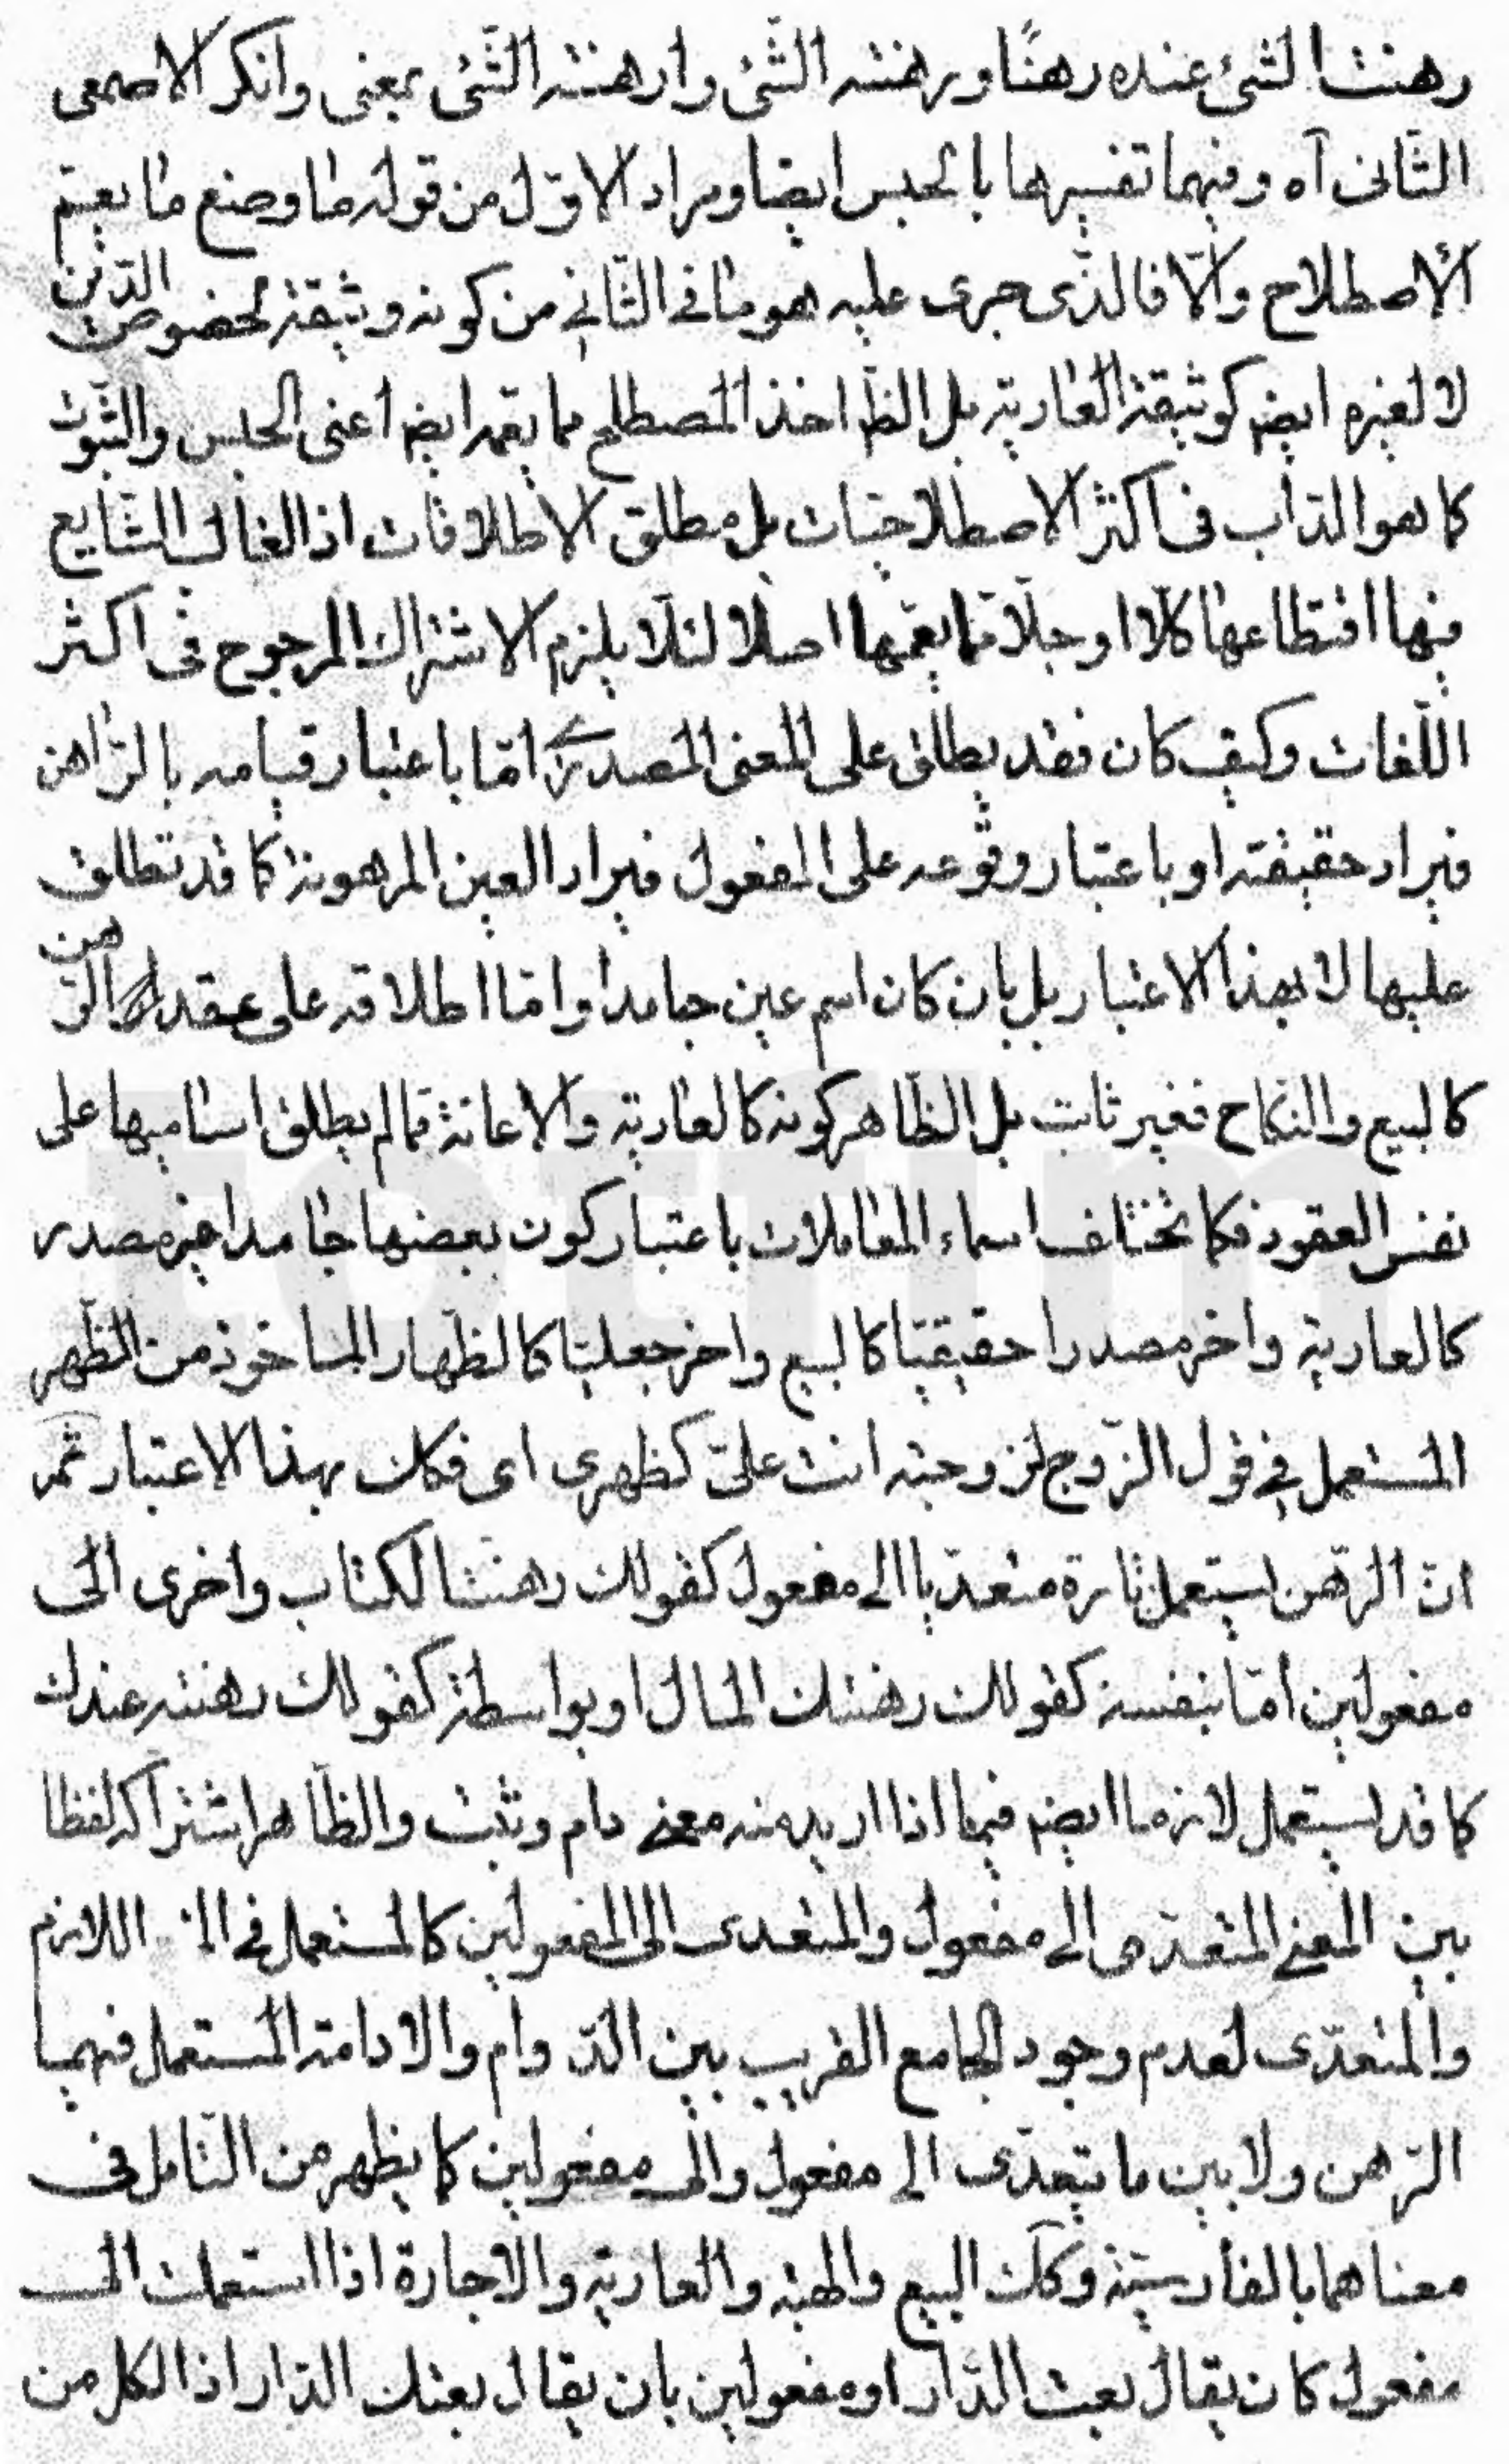 رهنت الشئ عنده رهنًا ورهنته الشّئ وارهنته الشّئ بمعنى وانكر الاصمعى
الثّانى آه وفيهما تفسيرها بالحبس ايضا ومراد الاوّل من قوله ما وضع ما يعمّ
الأصطلاح والّا فالّذى جرى عليه هو ما في الثّاني من كونه وثيقة لخصوص الدّين
لا لغيره ايضا كوثيقة العارية بل الظّ اخذ المصطلح مما يعمه ايضا اعنى الحبس والثّبوت
كما هو الدّاب فى اكثر الاصطلاحيّات بل مطلق الاطلاقات اذ الغالب الشّايع
فيها اقتطاعها كلّا او جلّا ممّا يعمّها اصلا لئلّا يلزم الاشتراك المرجوح فى اكثر
اللّغات وكيف كان فقد يطلق على المعنى المصدرىّ امّا باعتبار قيامه بالرّاهن
فيراد حقيقته او باعتبار وقوعه على المفعول فيراد العين المرهونة كما قد تطلق
عليها لا بهذا الاعتبار بل بان كان اسم عين جامدا وامّا اطلاقه على عقد الرّهن
كالبيع والنكاح فغير ثابت بل الظّاهر كونه كالعارية والاعانة ممّا لم يطلق اساميها على
نفس العقود فكما تختلف اسماء المعاملات باعتبار كون بعضها جامدا غير مصدر
كالعارية واخر مصدرا حقيقيّا كالبيع واخر جعليّا كالظّهار الماخوذ من الظّهر
المستعمل في قول الزّوج لزوجته انت علىّ كظهرى اى فكك بهذا الاعتبار ثمّ
انّ الرّهن يستعمل تارة متعدّيا الى مفعول كقولك رهنت الكتاب واخرى الى
مفعولين امّا بنفسه كقولك رهنتك المال او بواسطة كقولك رهنته عندك
كما قد يستعمل لازما ايضا فيما اذا اريد منه معنى دام وثبت والظّاهر اشتراكه لفظا
بين المعنى المتعدّى الى مفعول والمتعدى الى المفعولين كالمستعمل في اللازم
والمتعدّى لعدم وجود الجامع القريب بين الدّوام والادامة المستعمل فيهما
الرّهن ولا بين ما يتعدّى الى مفعول والى مفعولين كما يظهر من التّامل فى
معناهما بالفارسيّة وكك البيع والهبه والعارية والاجارة اذا استعملت الى
مفعول كان يقال بعت الدّار او مفعولين بان يقال بعتك الدّار اذ الكل من